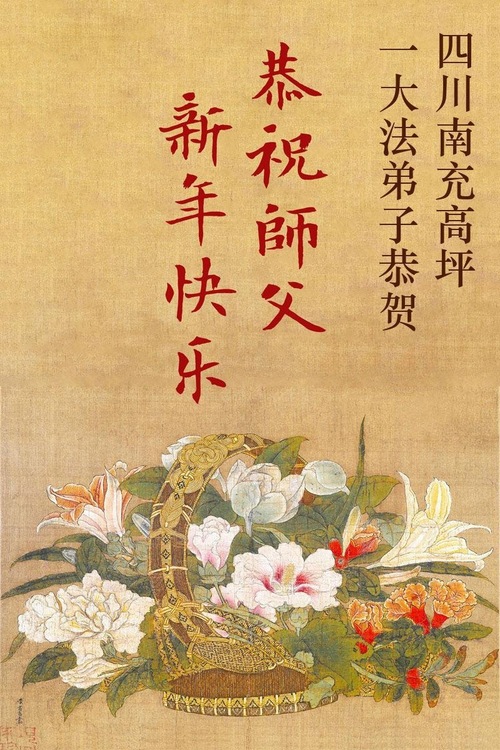 四川南充高坪
一大法弟子恭贺
恭祝師父
新年快乐